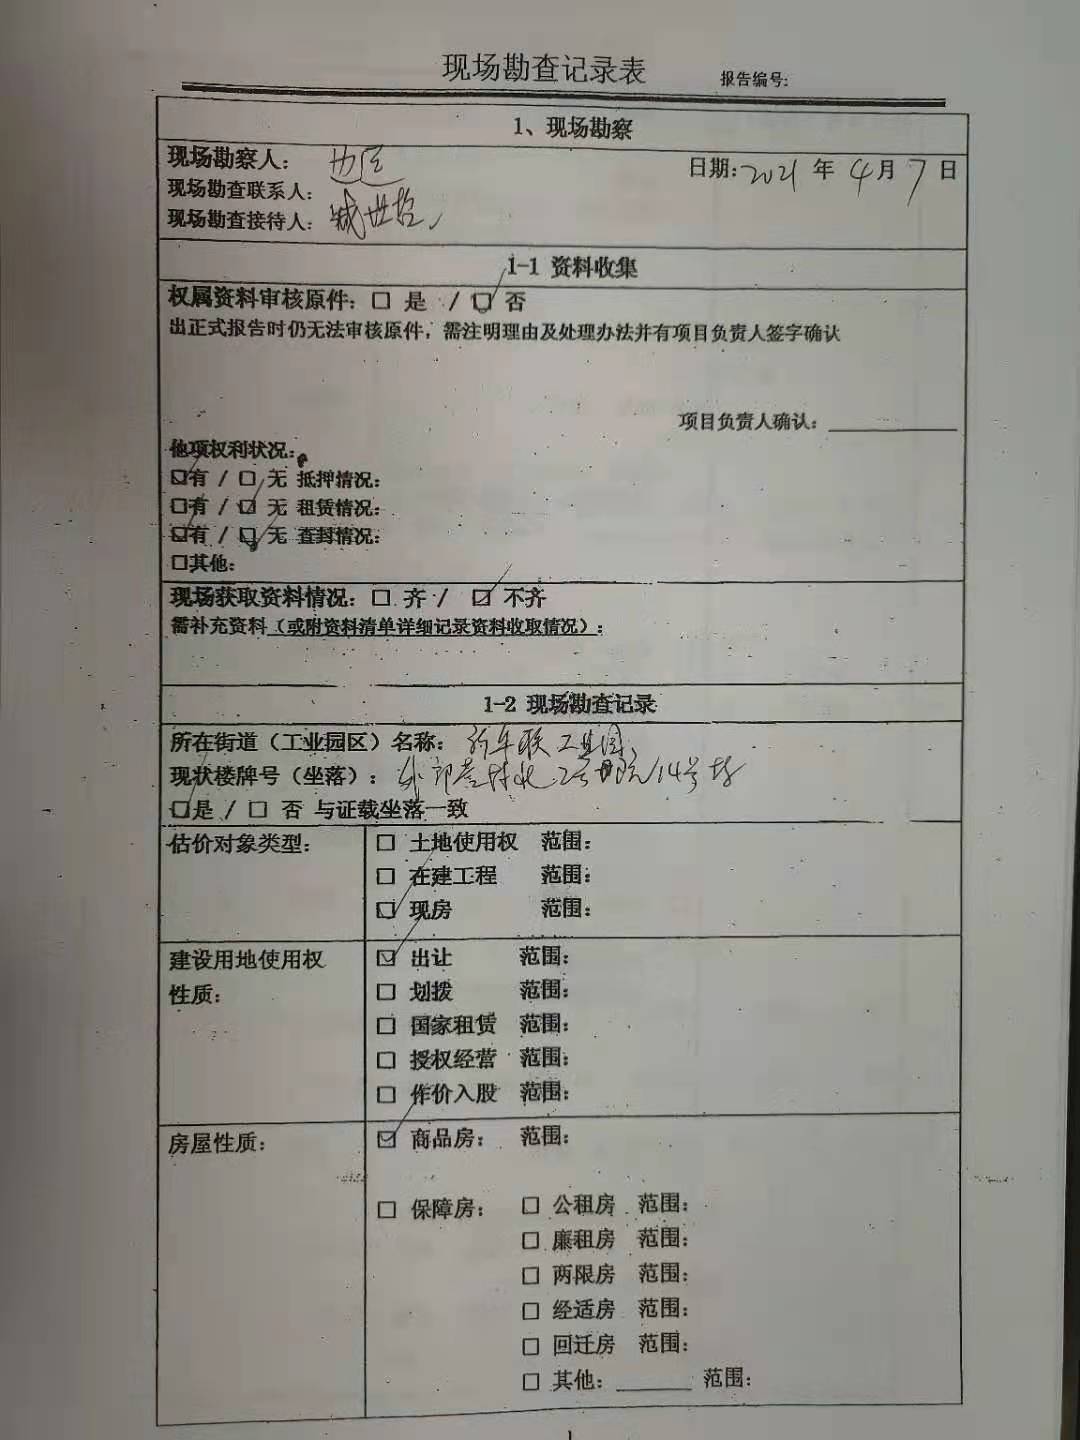 现场勘查记录表 报告编号:
1、现场勘察
现场勘察人: 日期:2021年4月7日
现场勘查联系人:
现场勘查接待人: 臧世
1-1 资料收集
权属资料审核原件: □ 是 / ☑ 否
出正式报告时仍无法审核原件，需注明理由及处理办法并有项目负责人签字确认
项目负责人确认:
他项权利状况:
☑有 / □ 无 抵押情况:
□有 / ☑ 无 租赁情况:
☑有 / ☑ 无 查封情况:
□其他:
现场获取资料情况: □ 齐 / ☑ 不齐
需补充资料（或附资料清单详细记录资料收取情况）:
1-2 现场勘查记录
所在街道（工业园区）名称: 联工业园
现状楼牌号（坐落）: 郎营村 2号院14号
☑是 / □ 否 与证载坐落一致
估价对象类型: □ 土地使用权 范围:
□ 在建工程 范围:
☑ 现房 范围:
建设用地使用权 ☑ 出让 范围:
性质: □ 划拨 范围:
□ 国家租赁 范围:
□ 授权经营 范围:
□ 作价入股 范围:
房屋性质: ☑ 商品房: 范围:
□ 保障房: □ 公租房 范围:
□ 廉租房 范围:
□ 两限房 范围:
□ 经适房 范围:
□ 回迁房 范围:
□ 其他:______ 范围:
1